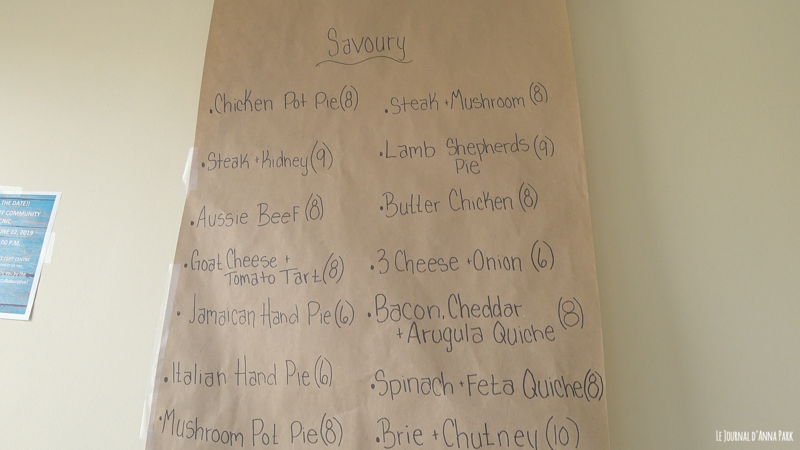 Savoury
•Chicken Pot Pie (8)
•Steak + Kidney (9)
•Aussie Beef (8)
•Goat Cheese +
Tomato Tart (8)
•Jamaican Hand Pie (6)
•Italian Hand Pie (6)
•Mushroom Pot Pie (8)
•Steak + Mushroom (8)
•Lamb Shepherds (9)
Pie
•Butter Chicken (8)
•3 Cheese + Onion (6)
•Bacon, Cheddar
+ Arugula Quiche (8)
•Spinach + Feta Quiche (8)
•Brie + Chutney (10)
THE DATE!!
COMMUNITY
2019
P.M.
Le Journal d'Anna Park